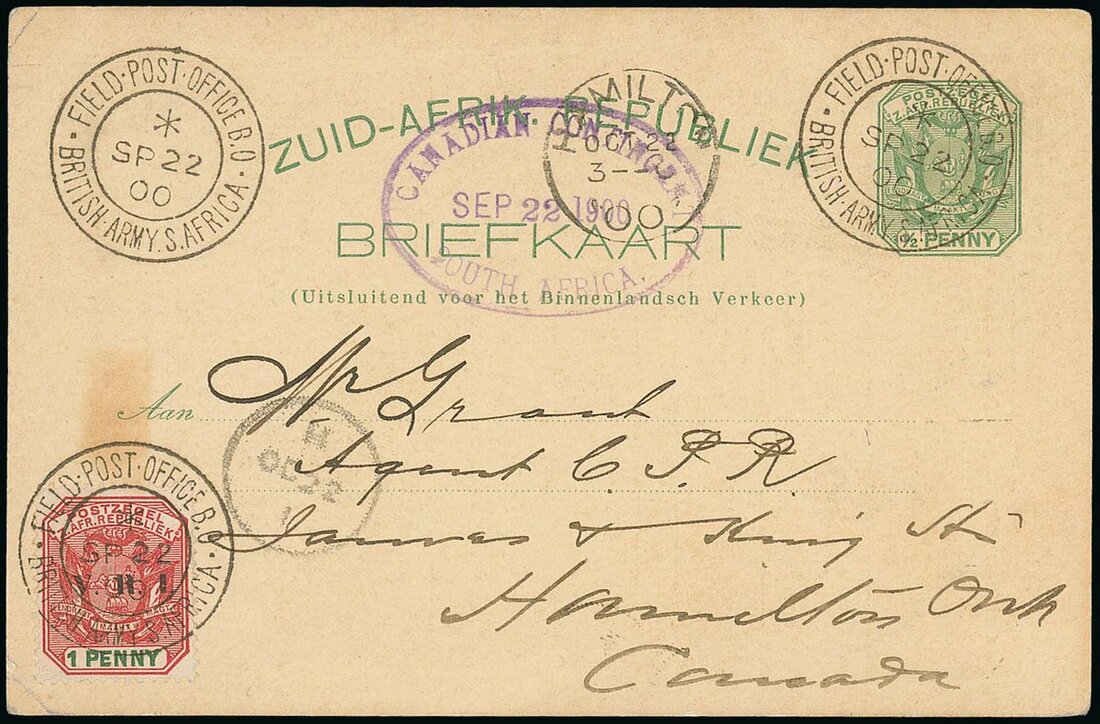 FIELD·POST·OFFICE B.O·
BRITISH·ARMY.S.AFRICA·
SP 22
00
ZUID-AFRIK. REPUBLIEK
CANADIAN CONTINGENT
SEP 22 1900
SOUTH AFRICA.
HAMILTON
OCT 22
3-
00
FIELD·POST·OFFICE B.O·
BRITISH·ARMY.S.AFRICA
SP 22
00
POSTZEGEL
Z.AFR.REPUBLIEK
½ PENNY
BRIEFKAART
(Uitsluitend voor het Binnenlandsch Verkeer)
Aan
Mr Grant
Agent C P R
James & King St
Hamilton Ont
Canada
OC 22
FIELD·POST·OFFICE B.O·
BRITISH ARMY.S.AFRICA
SP 22
POSTZEGEL
Z.AFR.REPUBLIEK
V.R.I.
1 PENNY